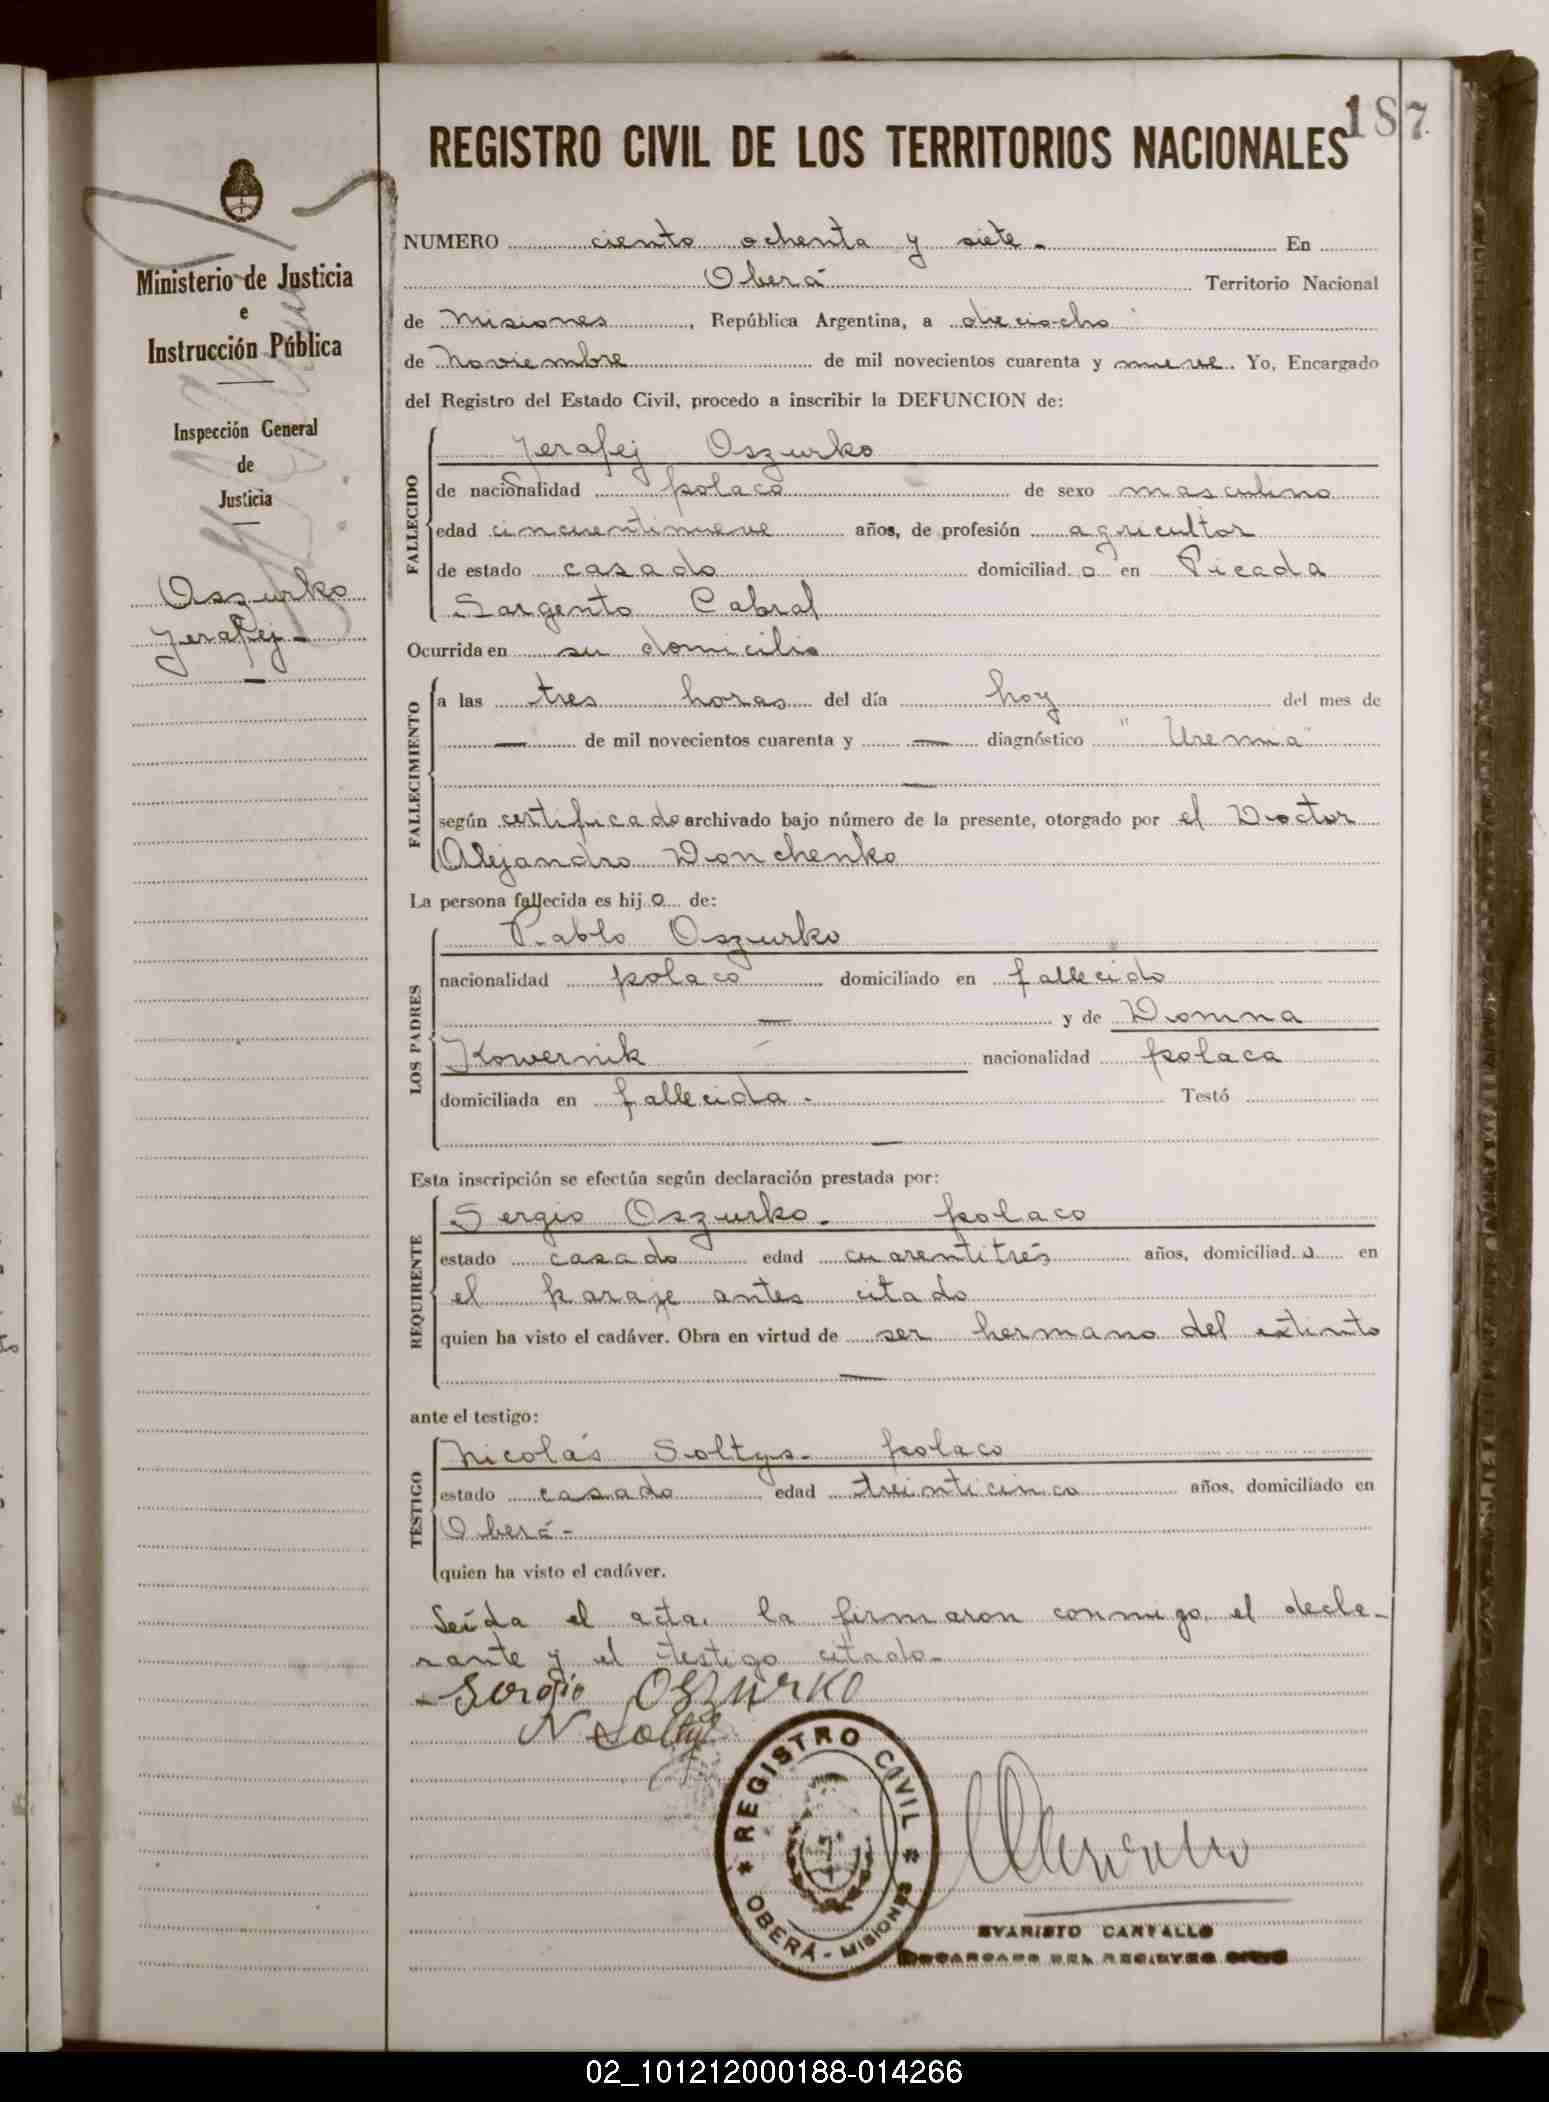 187
REGISTRO CIVIL DE LOS TERRITORIOS NACIONALES
Ministerio de Justicia
e
Instrucción Pública
Inspección General
de
Justicia
Oszurko
Jerafej -
NUMERO ciento ochenta y siete - En
Oberá Territorio Nacional
de Misiones, República Argentina, a dieciocho
de Noviembre de mil novecientos cuarenta y nueve. Yo, Encargado
del Registro del Estado Civil, procedo a inscribir la DEFUNCION de:
FALLECIDO
Jerafej Oszurko
de nacionalidad polaco de sexo masculino
edad cincuentinueve años, de profesión agricultor
de estado casado domiciliado en Picada
Sargento Cabral
Ocurrida en su domicilio
FALLECIMIENTO
a las tres horas del día hoy del mes de
— de mil novecientos cuarenta y — diagnóstico "Uremia"
—
según certificado archivado bajo número de la presente, otorgado por el Doctor
Alejandro Donchenko
La persona fallecida es hijo de:
LOS PADRES
Pablo Oszurko
nacionalidad polaco domiciliado en fallecido
— y de Domna
Kowernik nacionalidad polaca
domiciliada en fallecida. Testó
—
Esta inscripción se efectúa según declaración prestada por:
REQUIRENTE
Sergio Oszurko. polaco
estado casado edad cuarentitrés años, domiciliado en
el paraje antes citado
quien ha visto el cadáver. Obra en virtud de ser hermano del extinto
—
ante el testigo:
TESTIGO
Nicolás Soltys - polaco
estado casado edad treinticinco años, domiciliado en
Oberá -
quien ha visto el cadáver.
Leída el acta, la firmaron conmigo, el decla-
rante y el testigo citado -
Sergio OSZURKO
N Soltys
REGISTRO CIVIL
OBERÁ - MISIONES
EVARISTO CARVALLO
ENCARGADO DEL REGISTRO CIVIL
02_101212000188-014266